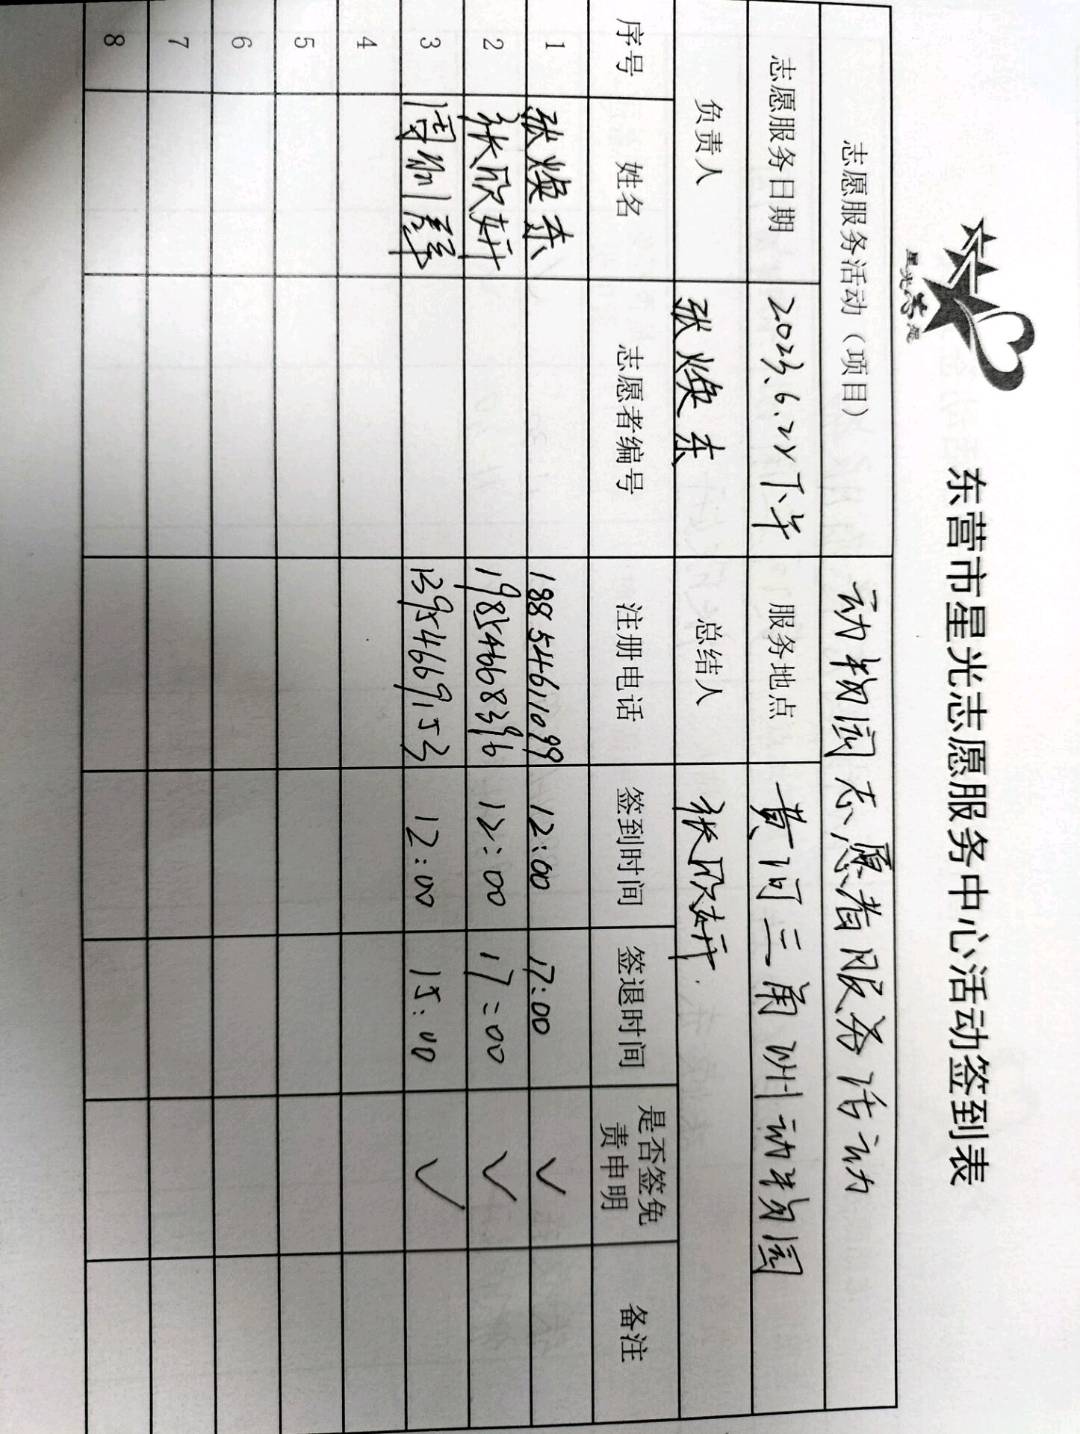 东营市星光志愿服务中心活动签到表
志愿服务活动（项目） 动物园志愿者服务活动
志愿服务日期 2023.6.22下午 服务地点 黄河三角洲动物园
负责人 张焕东 总结人 张欣妍
序号 姓名 志愿者编号 注册电话 签到时间 签退时间 是否签免责申明 备注
1 张焕东 18854611099 12:00 17:00 ✓
2 张欣妍 19854668396 12:00 17:00 ✓
3 周 13954669153 12:00 15:00 ✓
4
5
6
7
8